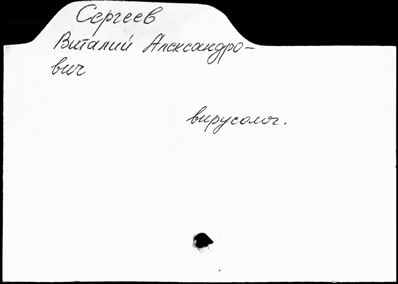 Сергеев
Виталий Александро-
вич
вирусолог.